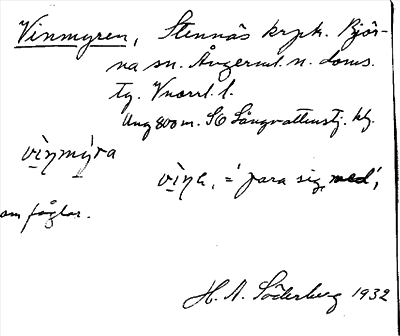 Vinmyren, Stennäs krpk. Björ-
na sn. Ångerml. n. doms.
tg. Vnorrl. l.
Ung 800 m. SO Långvattenstj. kly.
vìnmy̌ra
vìna, = 'para sig med',
om fåglar.
H. A. Söderberg 1932